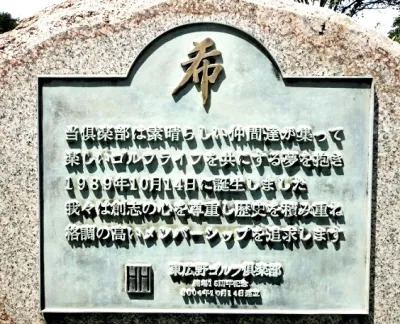 希
当倶楽部は素晴らしい仲間達が集って
楽しいゴルフライフを共にする夢を抱き
1989年10月14日に誕生しました
我々は創志の心を尊重し歴史を積み重ね
格調の高いメンバーシップを追求します
東広野ゴルフ倶楽部
開場15周年記念
2004年10月14日建立